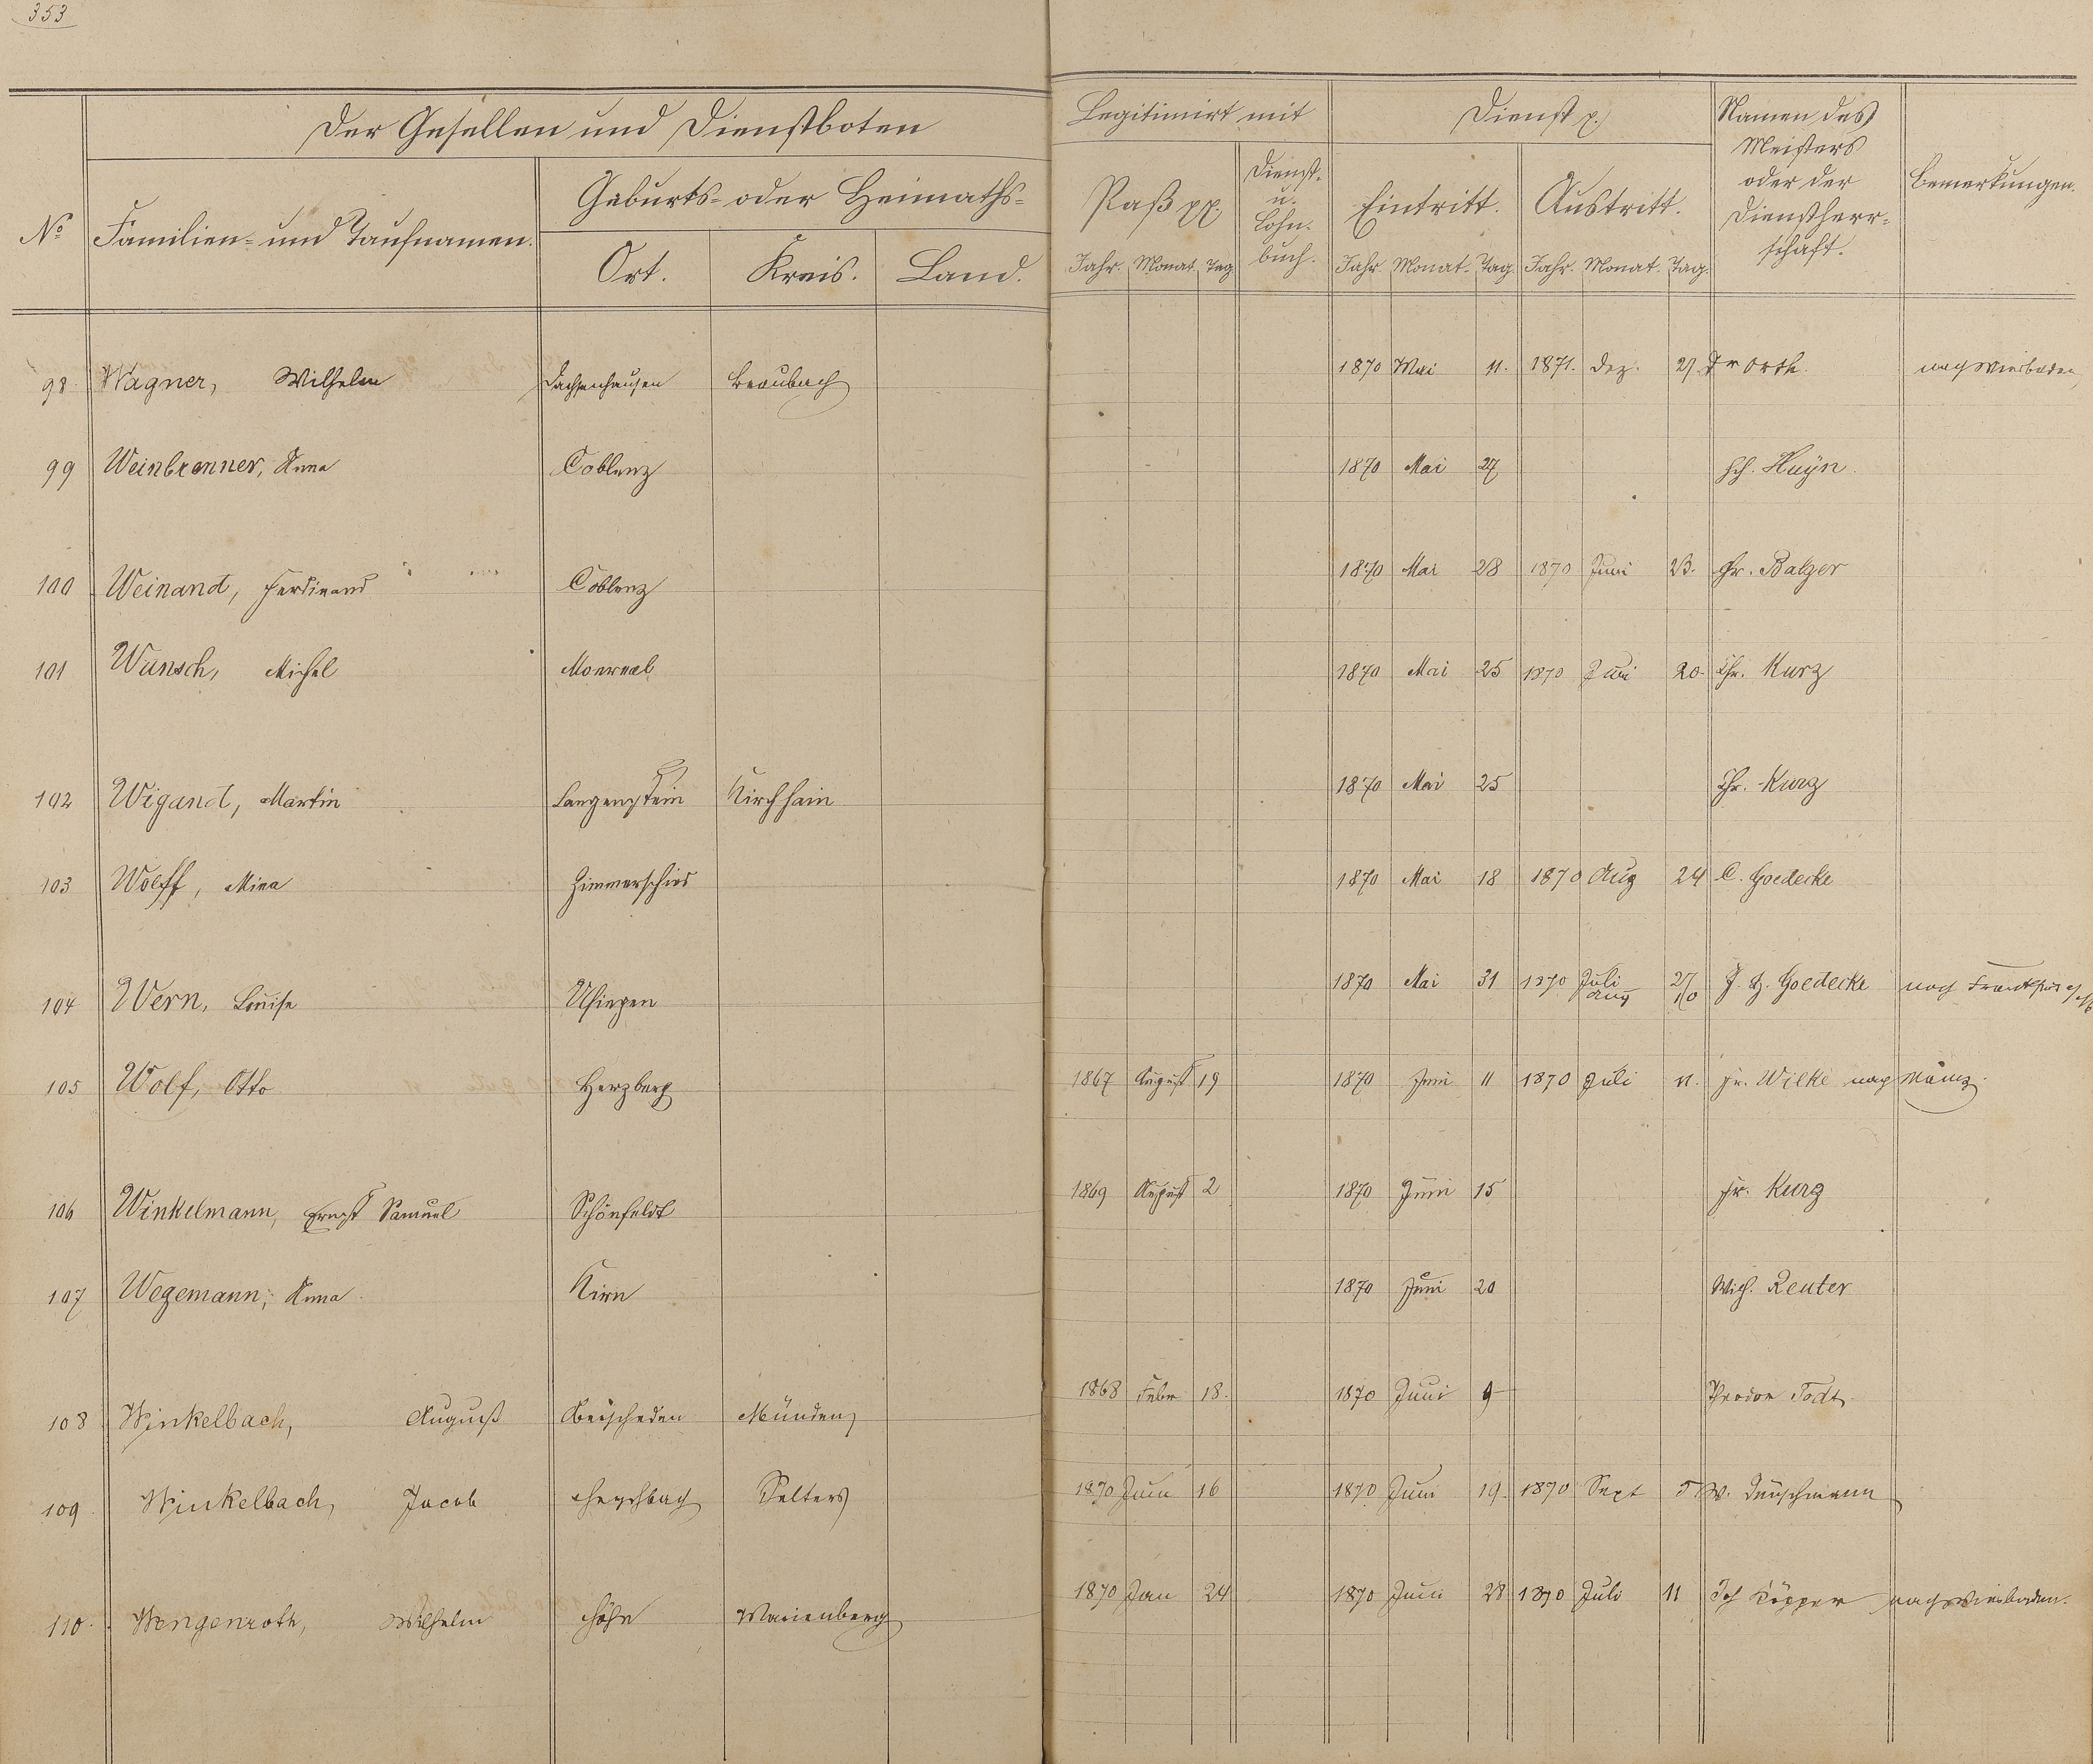 353
Der Gesellen und Dienstboten
Legitimirt mit
Dienst p.
Namen des Meisters oder der Dienstherrschaft.
Bemerkungen.
No
Familien- und Taufnamen.
Geburts- oder Heimaths-
Paß pp.
Dienst- u. Lohn- buch.
Eintritt.
Austritt.
Ort. Kreis. Land.
Jahr. Monat. Tag
Jahr. Monat. Tag. Jahr. Monat. Tag.
98. Wagner, Wilhelm Dachsenhausen Braubach 1870 Mai 11. 1871. Dez. 27. Fr Orth. nach Wiesbaden
99 Weinbrenner, Anna Coblenz 1870 Mai 27 Hch. Huyn.
100 Weinand, Ferdinand Coblenz 1870 Mai 28 1870 Juni 23. Fr. Balzer
101 Wunsch, Michel Monreal 1870 Mai 25 1870 Juni 20. Chr. Kurz
102 Wigand, Martin Langenstein Kirchhain 1870 Mai 25 Chr. Kurz
103 Wolff, Mina Zimmerschied 1870 Mai 18 1870 Aug 24 C. Goedecke
104 Wern, Louise Usingen 1870 Mai 31 1870 Juli 27 Aug 10 J. H. Goedecke nach Frankfurt a/M
105 Wolf, Otto Herzberg 1867 August 19 1870 Juni 11 1870 Juli 11. Fr. Wilke nach Mainz.
106 Winkelmann, Ernst Samuel Schönfeldt 1869 August 2 1870 Juni 15 Fr. Kurz
107 Wegemann, Anna Kirn 1870 Juni 20 Wich. Reuter
108 Winkelbach, August Münden 1868 Febr 18. 1870 Juni 9 Todt
109. Winkelbach, Jacob Selters 1870 Juni 16 1870 Juni 19. 1870 Sept 5 W. Deuschmann
110. Wengenroth, Wilhelm Höhn Marienberg 1870 Jan 24 1870 Juni 28 1870 Juli 11 Köpper nach Wiesbaden.